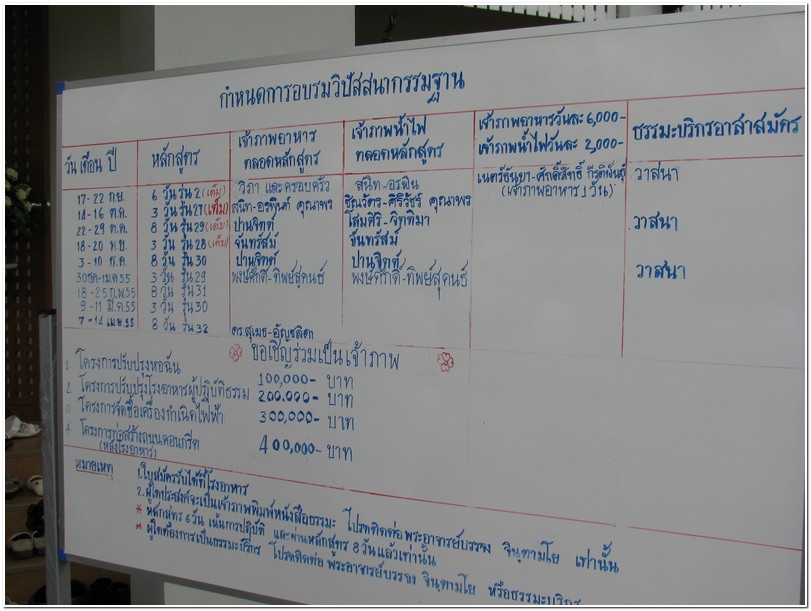 กำหนดการอบรมวิปัสสนากรรมฐาน
วัน เดือน ปี หลักสูตร เจ้าภาพอาหาร ตลอดหลักสูตร เจ้าภาพน้ำไฟ ตลอดหลักสูตร เจ้าภาพอาหารวันละ 6,000- เจ้าภาพน้ำไฟวันละ 2,000- ธรรมะบริกรอาสาสมัคร
17-22 ก.ย. 6 วัน รุ่น 2 (เต็ม) วิภา และครอบครัว สนิท-อรพิน เนตรธันยา-ศักดิ์สิทธิ์ (เจ้าภาพอาหาร 1 วัน) วาสนา
14-16 ต.ค. 3 วัน รุ่น 27 (เต็ม) สนิท-อรพินท์ คุณาพร ชิณวัตร-ศิริวัชร์ คุณาพร
22-29 ต.ค. 8 วัน รุ่น 29 (เต็ม) ปานจิตต์ โสมศิริ-จิตติมา วาสนา
18-20 พ.ย. 3 วัน รุ่น 28 (เต็ม) จันทรัสม์ จันทรัสม์
3-10 ธ.ค. 8 วัน รุ่น 30 ปานจิตต์ ปานจิตต์ วาสนา
30ธค-1มค55 3 วัน รุ่น 29 พงษ์ศักดิ์-ทิพย์สุคนธ์ พงษ์ศักดิ์-ทิพย์สุคนธ์
18-25 ก.พ.55 8 วัน รุ่น 31
9-11 มี.ค.55 3 วัน รุ่น 30
7-14 เมย.55 8 วัน รุ่น 32 ดร.สุเมธ-อัญชลิตา
ขอเชิญร่วมเป็นเจ้าภาพ
1. โครงการปรับปรุงหอฉัน 100,000- บาท
2. โครงการปรับปรุงโรงอาหารผู้ปฏิบัติธรรม 200,000- บาท
3. โครงการจัดซื้อเครื่องกำเนิดไฟฟ้า 300,000- บาท
4. โครงการก่อสร้างถนนคอนกรีต 400,000- บาท
(หลังโรงอาหาร)
หมายเหตุ 1. ใบสมัครรับได้ที่โรงอาหาร
2. ผู้ใดประสงค์จะเป็นเจ้าภาพพิมพ์หนังสือธรรมะ โปรดติดต่อพระอาจารย์บรรจง จินฺตามโย เท่านั้น
* หลักสูตร 6 วัน เน้นการปฏิบัติ และผ่านหลักสูตร 8 วันแล้วเท่านั้น
* ผู้ใดต้องการเป็นธรรมะบริกร โปรดติดต่อ พระอาจารย์บรรจง จินฺตามโย หรือธรรมะบริกร